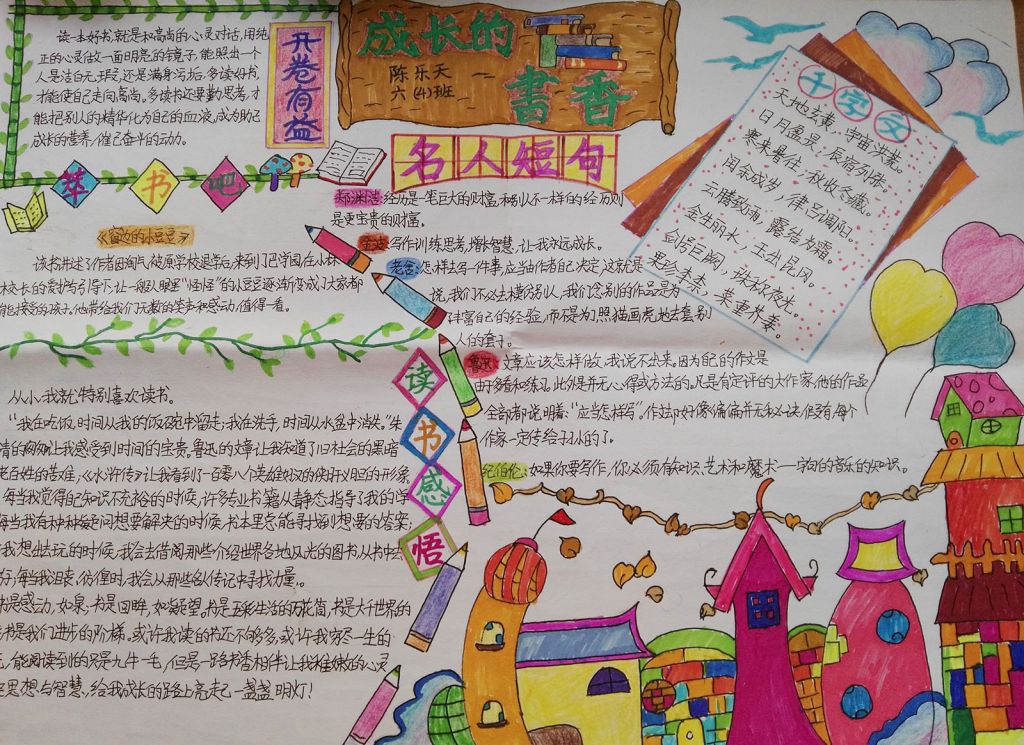 成长的
書香
陈乐天
六(4)班
开卷有益
读一本好书,就是和高尚的心灵对话,用纯
正的心灵做一面明亮的镜子,能照出一个
人是洁白无瑕,还是满身污垢。多读好书
才能使自己走向高尚。多读书还要勤思考,才
能把别人的精华化为自己的血液,成为助己
成长的营养,催己奋斗的动力。
萃书吧
《窗边的小豆豆》
该书讲述了作者因淘气被原学校退学后,来到了巴学园,在小林
校长的爱护与引导下,让一般人眼里"怪怪"的小豆豆逐渐变成了大家都
能接受的孩子,他带给我们无数的笑声和感动,值得一看。
名人短句
郑渊洁:经历是一笔巨大的财富,和别人不一样的经历则
是更宝贵的财富。
金波:写作训练思考,增长智慧,让我永远成长。
老舍:怎样去写一件事,应当由作者自己决定,这就是
说,我们不必去模仿别人,我们念别的作品是为
丰富自己的经验,而不是为了照猫画虎地去套别
人的套子。
鲁迅:文章应该怎样做,我说不出来,因为自己的作文是
由于多看和练习,此外是并无心得或方法的。凡是有定评的大作家,他的作品
全部都说明着:"应当怎样写"。作站
作家一定传给子孙的了。
纪伯伦:如果你要写作,你必须有知识、艺术和魔术——字句的音乐的知识。
千字文
天地玄黄,宇宙洪荒。
日月盈昃,辰宿列张。
寒来暑往,秋收冬藏。
闰余成岁,律吕调阳。
云腾致雨,露结为霜。
金生丽水,玉出昆冈。
剑号巨阙,珠称夜光。
果珍李柰,菜重芥姜。
读书感悟
从小,我就特别喜欢读书。
"我在吃饭,时间从我的饭碗中留走;我在洗手,时间从水盆中消失。"朱
清的匆匆让我感受到时间的宝贵。鲁迅的文章让我知道了旧社会的黑暗
老百姓的苦难,《水浒传》让我看到了一百零八个英雄好汉的侠肝义胆的形象。
每当我觉得自己知识不充裕的时候,许多专业书籍从静态指导了我的学
每当我有种种疑问想要解决的时候,书本里总能寻找到想要的答案;
我想出去玩的时候,我会去借阅那些介绍世界各地风光的图书,从书中去
每当我沮丧、彷徨时,我会从那些名人传记中寻找力量。
书是感动,如泉,书是回眸,如凝望。书是五彩生活的万花筒,书是大千世界的
书是我们进步的阶梯。或许我读的书还不够多,或许我穷尽一生的
能阅读到的只是九牛一毛,但是一路书香相伴让我稚嫩的心灵
思想与智慧,给我成长的路上亮起一盏盏明灯!